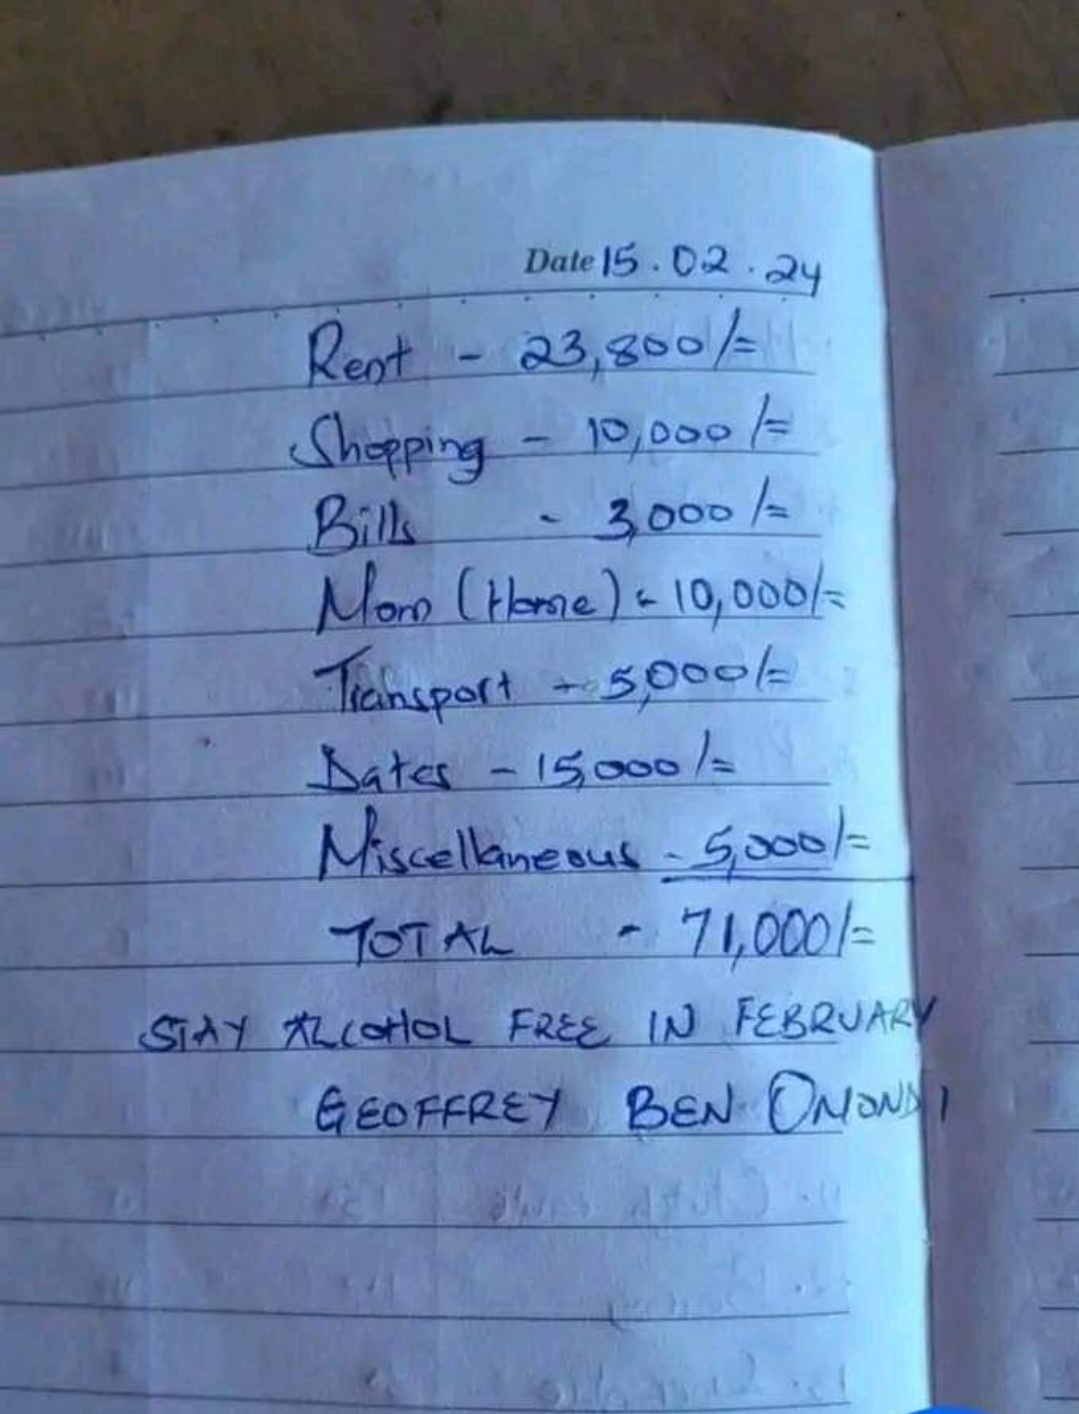 Date 15.02.24
Rent - 23,800/=
Shopping - 10,000/=
Bills - 3,000/=
Mom (Home) - 10,000/=
Transport - 5,000/=
Dates - 15,000/=
Miscellaneous - 5,000/=
TOTAL - 71,000/=
STAY ALCOHOL FREE IN FEBRUARY
GEOFFREY BEN OMONDI